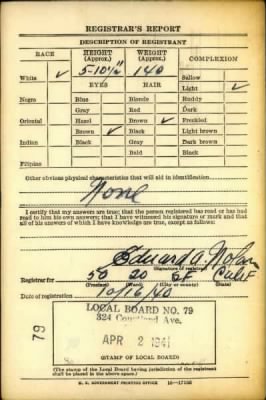 REGISTRAR'S REPORT
DESCRIPTION OF REGISTRANT
RACE HEIGHT (Approx.) WEIGHT (Approx.) COMPLEXION
White ✓ 5-10½" 140 Sallow
EYES HAIR Light ✓
Negro Blue Blonde Ruddy
Gray Red Dark
Oriental Hazel Brown ✓ Freckled
Brown ✓ Black Light brown
Indian Black Gray Dark brown
Bald Black
Filipino
Other obvious physical characteristics that will aid in identification
None
I certify that my answers are true; that the person registered has read or has had
read to him his own answers; that I have witnessed his signature or mark and that
all of his answers of which I have knowledge are true, except as follows:
Edward A. Nolan
(Signature of registrar)
Registrar for 50 20 SF Calif
(Precinct) (Ward) (City or county) (State)
Date of registration 10/16/40
LOCAL BOARD NO. 79
324 Ave.
79
APR 2 1941
(STAMP OF LOCAL BOARD)
(The stamp of the Local Board having jurisdiction of the registrant
shall be placed in the above space.)
U. S. GOVERNMENT PRINTING OFFICE 16—17105